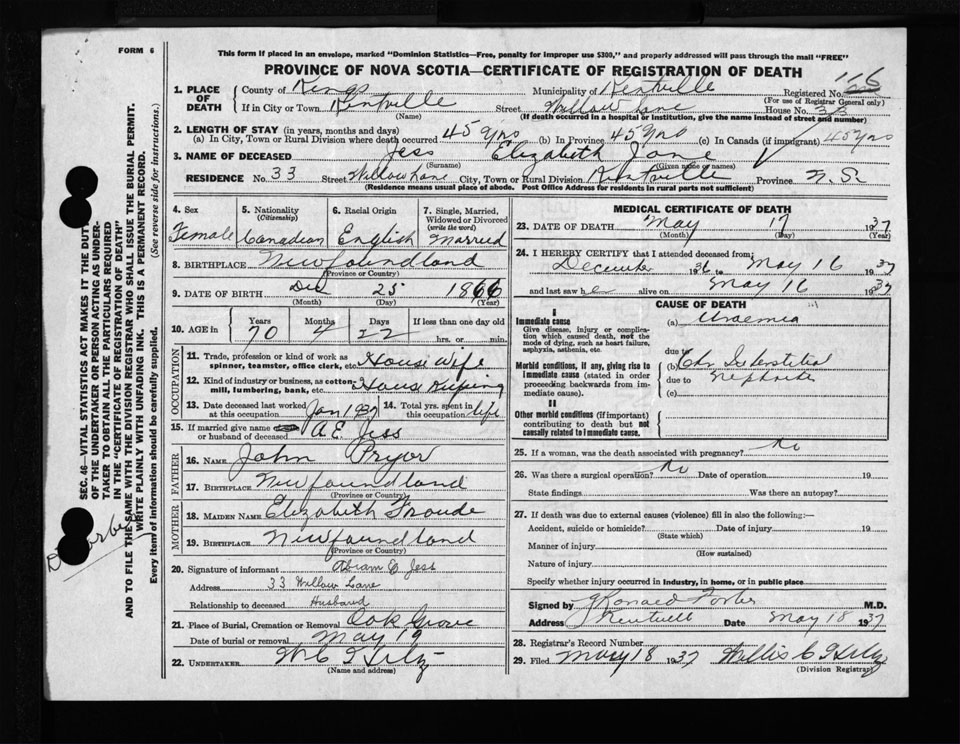 FORM 6
This form if placed in an envelope, marked "Dominion Statistics—Free, penalty for improper use $300," and properly addressed will pass through the mail "FREE"
PROVINCE OF NOVA SCOTIA—CERTIFICATE OF REGISTRATION OF DEATH
116
1. PLACE OF DEATH
County of Kings Municipality of Kentville Registered No.
(For use of Registrar General only)
If in City or Town Kentville Street Willow Lane House No. 33
(Name) (If death occurred in a hospital or institution, give the name instead of street and number)
2. LENGTH OF STAY (in years, months and days)
(a) In City, Town or Rural Division where death occurred 45 yrs (b) In Province 45 yrs (c) In Canada (if immigrant) 45 yrs
3. NAME OF DECEASED Jess Elizabeth Jane
(Surname) (Given name or names)
RESIDENCE No. 33 Street Willow Lane City, Town or Rural Division Kentville Province N.S.
(Residence means usual place of abode. Post Office Address for residents in rural parts not sufficient)
4. Sex
Female
5. Nationality
(Citizenship)
Canadian
6. Racial Origin
English
7. Single, Married, Widowed or Divorced
(write the word)
Married
8. BIRTHPLACE Newfoundland
(Province or Country)
9. DATE OF BIRTH Dec 25 1866
(Month) (Day) (Year)
10. AGE in
Years Months Days If less than one day old
70 4 22 hrs. or min.
OCCUPATION
11. Trade, profession or kind of work as spinner, teamster, office clerk, etc. House wife
12. Kind of industry or business, as cotton mill, lumbering, bank, etc. House Keeping
13. Date deceased last worked at this occupation Jan 1937
14. Total yrs. spent in this occupation life
15. If married give name or husband of deceased A E. Jess
FATHER
16. NAME John Pryor
17. BIRTHPLACE Newfoundland
(Province or Country)
MOTHER
18. MAIDEN NAME Elizabeth Froude
19. BIRTHPLACE Newfoundland
(Province or Country)
20. Signature of informant Abram E Jess
Address 33 Willow Lane
Relationship to deceased Husband
21. Place of Burial, Cremation or Removal Oak Grove
Date of burial or removal May 19
22. UNDERTAKER
(Name and address)
MEDICAL CERTIFICATE OF DEATH
23. DATE OF DEATH May 17 1937
(Month) (Day) (Year)
24. I HEREBY CERTIFY that I attended deceased from:
December 1936 to May 16 1937
and last saw h alive on May 16 1937
CAUSE OF DEATH
I
Immediate cause
Give disease, injury or complication which caused death, not the mode of dying, such as heart failure, asphyxia, asthenia, etc.
(a) Uraemia
due to
Morbid conditions, if any, giving rise to immediate cause (stated in order proceeding backwards from immediate cause).
(b) Chr Interstitial
due to Nephritis
(c)
II
Other morbid conditions (if important) contributing to death but not causally related to immediate cause.
25. If a woman, was the death associated with pregnancy? No
26. Was there a surgical operation? No Date of operation 19
State findings Was there an autopsy?
27. If death was due to external causes (violence) fill in also the following:—
Accident, suicide or homicide? Date of injury 19
(State which)
Manner of injury
(How sustained)
Nature of injury
Specify whether injury occurred in industry, in home, or in public place
Signed by Foster M.D.
Address Kentville Date May 18 1937
28. Registrar's Record Number
29. Filed May 18 1937
(Division Registrar)
SEC. 46—VITAL STATISTICS ACT MAKES IT THE DUTY
OF THE UNDERTAKER OR PERSON ACTING AS UNDER-
TAKER TO OBTAIN ALL THE PARTICULARS REQUIRED
IN THE "CERTIFICATE OF REGISTRATION OF DEATH"
AND TO FILE THE SAME WITH THE DIVISION REGISTRAR WHO SHALL ISSUE THE BURIAL PERMIT.
WRITE PLAINLY WITH UNFADING INK. THIS IS A PERMANENT RECORD.
Every item of information should be carefully supplied. (See reverse side for instructions.)